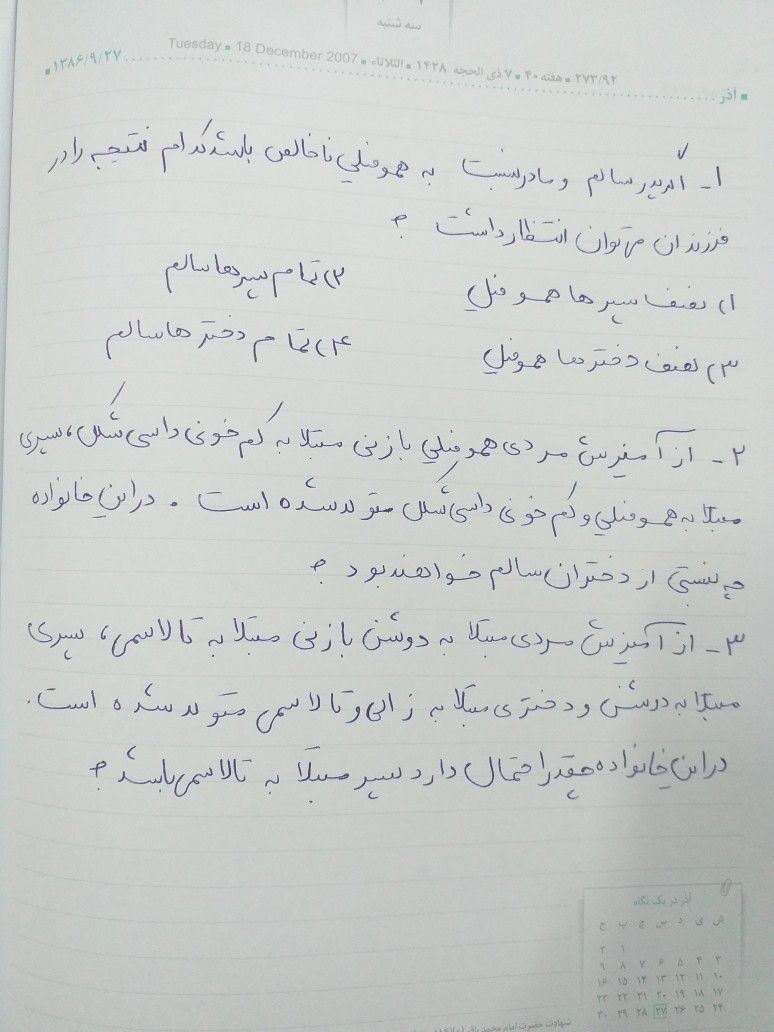 سه شنبه
Tuesday ▪ 18 December 2007 ▪ الثلاثاء ▪ ۷ ذی الحجه ۱۴۲۸ ▪ هفته ۴۰ ▪ ۲۷۳/۹۲
▪ آذر ▪ ۱۳۸۶/۹/۲۷
۱- اگر پدر سالم و مادر نسبت به هموفیلی ناخالص باشد کدام نتیجه را در
فرزندان می توان انتظار داشت ؟
۱) نصف پسر ها هموفیلی ۲) تمام پسرها سالم
۳) نصف دخترها هموفیلی ۴) تمام دخترها سالم
۲- از آمیزش مردی هموفیلی با زنی مبتلا به کم خونی داسی شکل، پسری
مبتلا به هموفیلی و کم خونی داسی شکل متولد شده است . در این خانواده
چه نسبتی از دختران سالم خواهند بود ؟
۳- از آمیزش مردی مبتلا به دوشن با زنی مبتلا به تالاسمی، پسری
مبتلا به دوشن و دختری مبتلا به زالی و تالاسمی متولد شده است.
در این خانواده چقدر احتمال دارد پسر مبتلا به تالاسمی باشد ؟
آذر در یک نگاه
ش ی د س چ پ ج
۱ ۲
۳ ۴ ۵ ۶ ۷ ۸ ۹
۱۰ ۱۱ ۱۲ ۱۳ ۱۴ ۱۵ ۱۶
۱۷ ۱۸ ۱۹ ۲۰ ۲۱ ۲۲ ۲۳
۲۴ ۲۵ ۲۶ ۲۷ ۲۸ ۲۹ ۳۰
شهادت حضرت امام محمد باقر